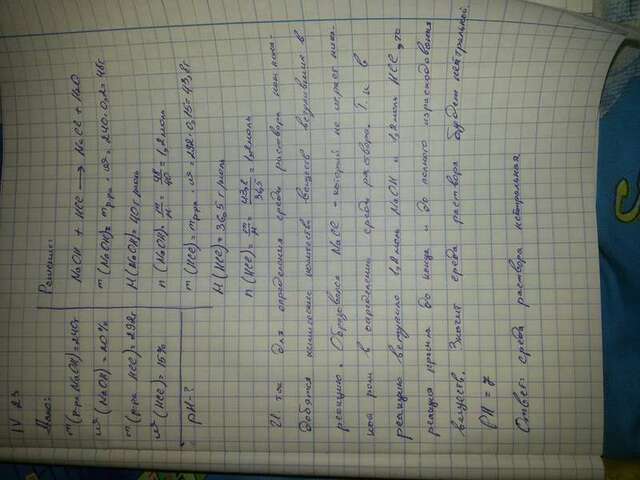 IV 23
Дано:
m(р-ра NaOH)=240г
ω (NaOH) = 20%
m(р-ра HCl)=292г
ω(HCl)= 15%
pH-?
Решение:
NaOH + HCl → NaCl + H2O
m (NaOH)= mр-ра · ω = 240·0,2= 48г
M(NaOH)=40 г/моль
n(NaOH)= m/M = 48/40 = 1,2 моль
m (HCl) = mр-ра · ω = 292·0,15= 43,8г
M (HCl) = 36,5 г/моль
n(HCl)= m/M = 43,8/36,5 = 1,2 моль
И так для определения среды раствора нам
количество веществ вступивших в
реакцию. Образовался NaCl - который не играет
кой роли в определении среды раствора. Т.к в
реакцию вступило 1,2 моль NaOH и 1,2 моль HCl, то
реакция прошла до конца и до полного израсходования
веществ. Значит среда раствора будет нейтральной
PH = 7
Ответ: среда раствора нейтральная